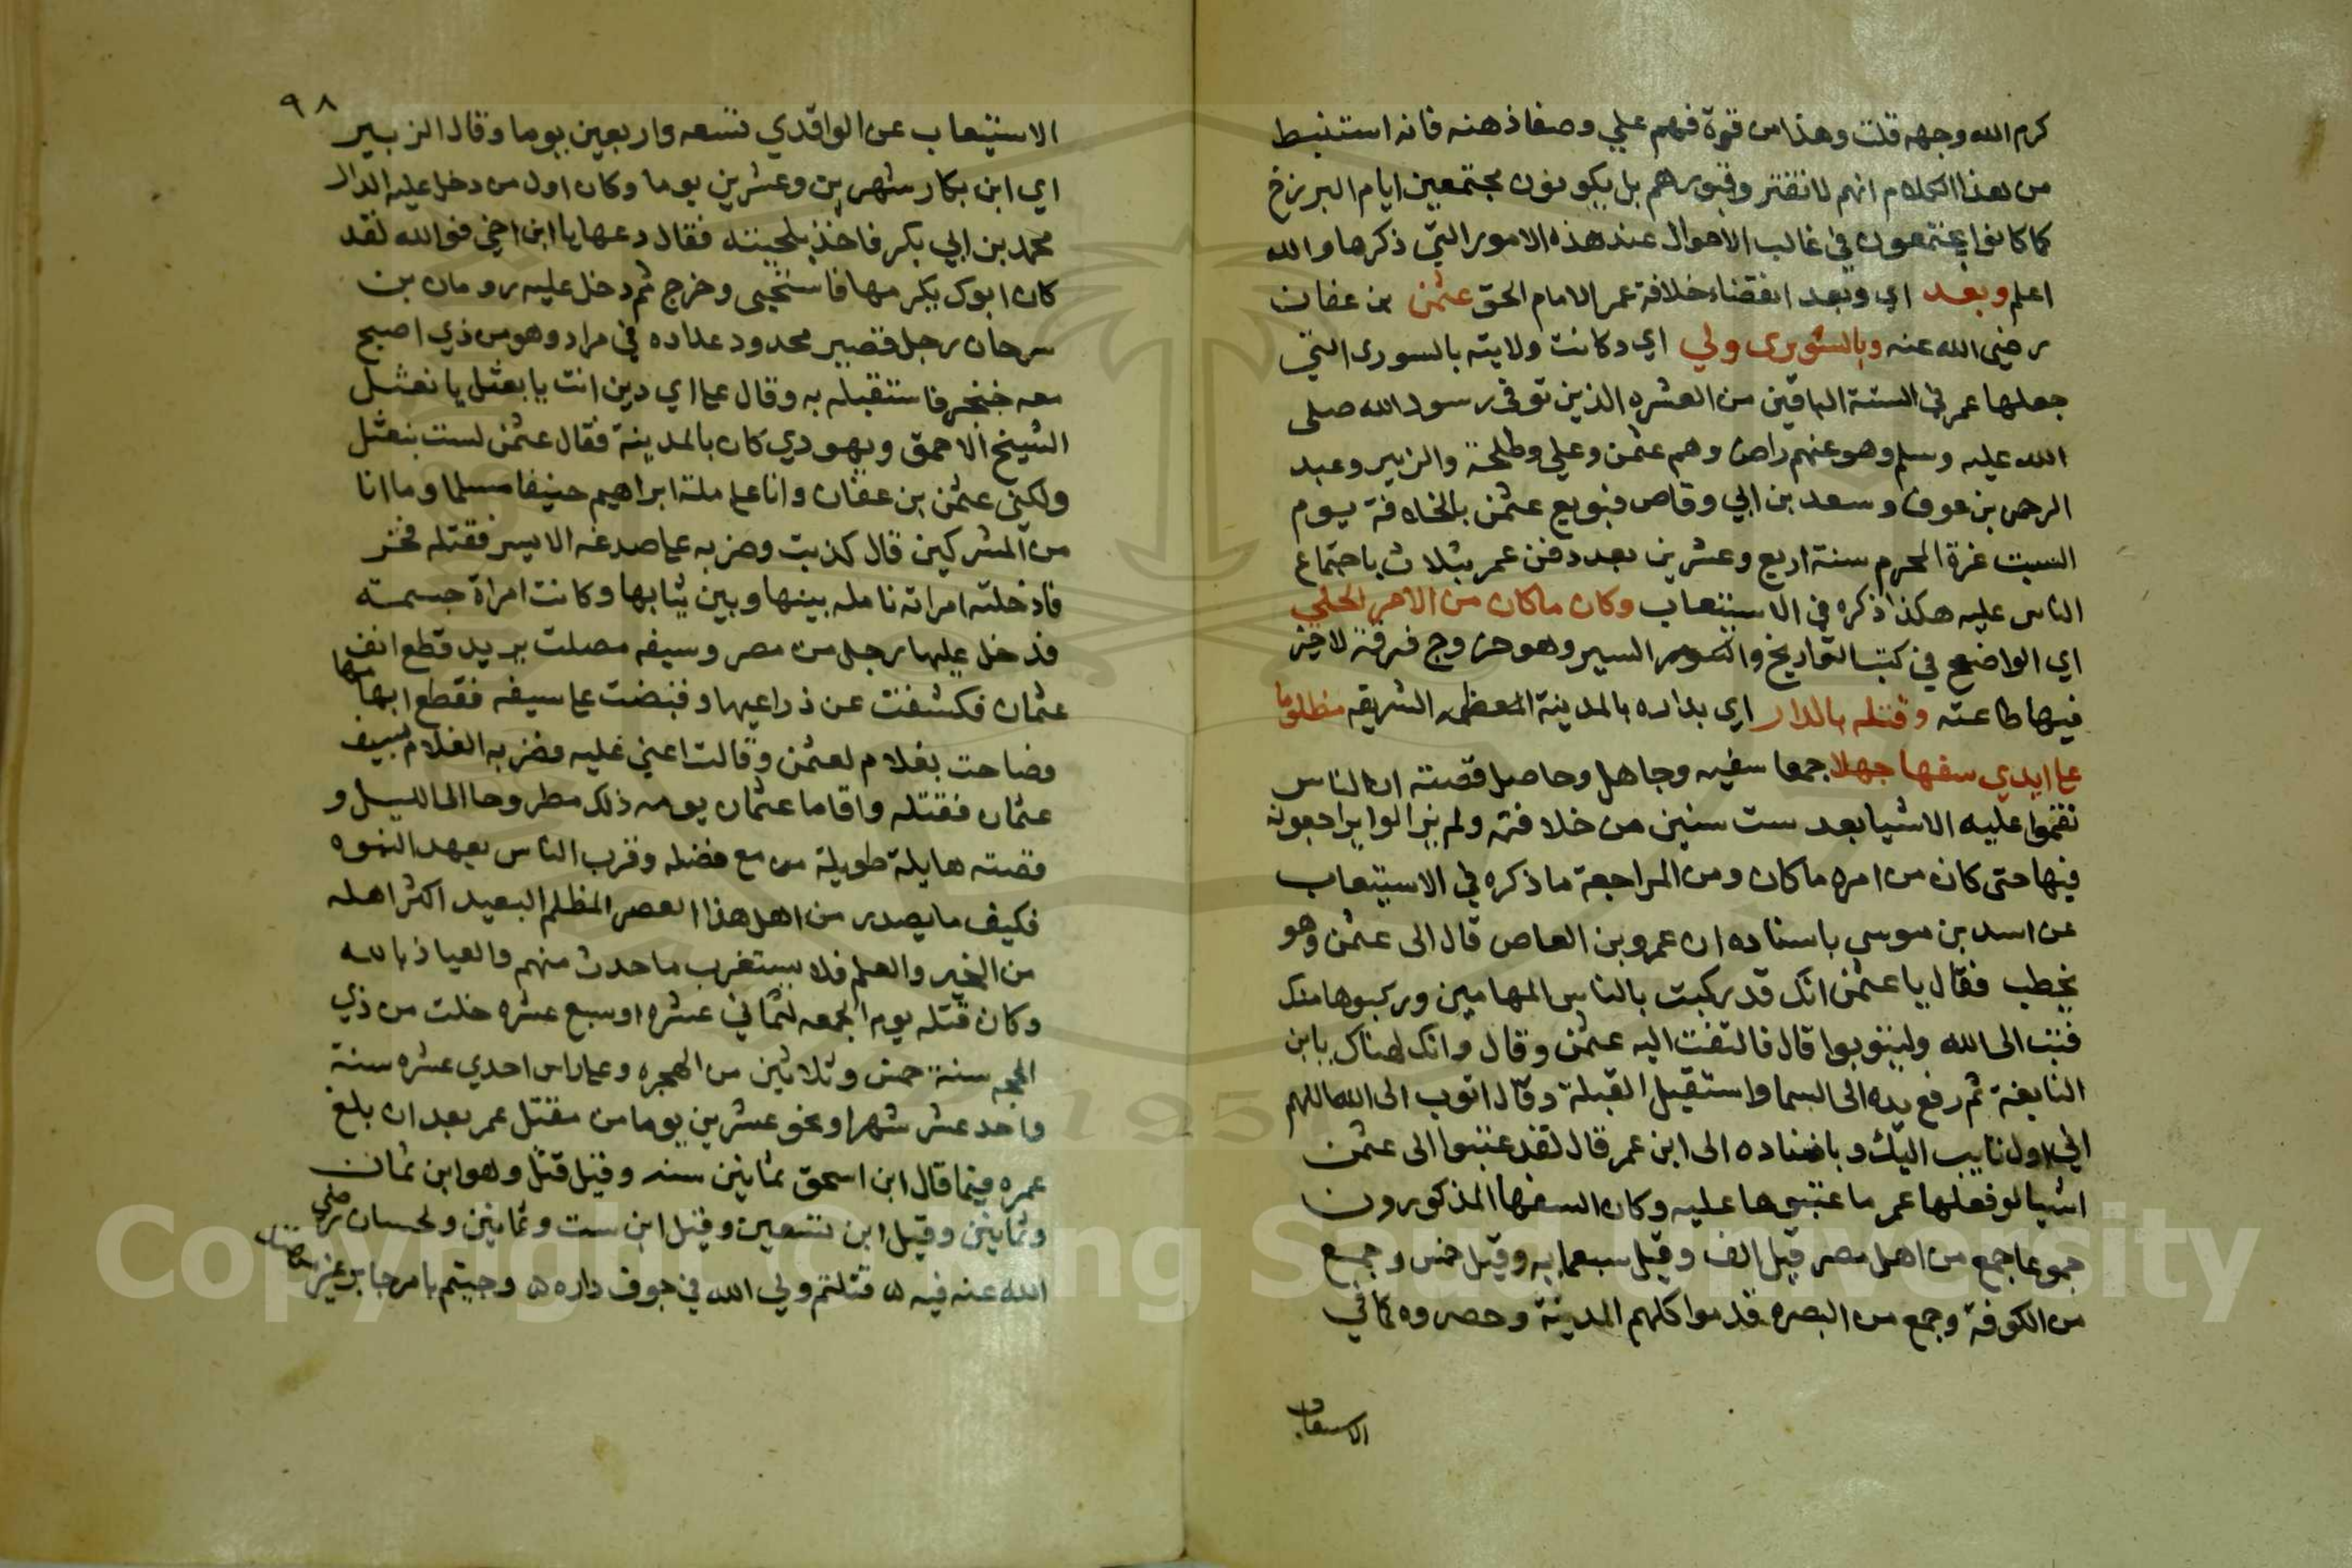 كرم الله وجهه قلت وهذا من قوة فهم علي وصفا ذهنه فانه استنبط
من هذا الكلام انهم لا تفتر وقبورهم بل يكونون مجتمعين ايام البرزخ
كما كانوا يجتمعون في غالب الاحوال عند هذه الامور التي ذكرها والله
اعلم وبعد اي وبعد انقضاء خلافة عمر الامام الحق عثمن بن عفان
رضي الله عنه وبالشورى ولي اي وكانت ولايته بالسورى التي
جعلها عمر في الستة الباقين من العشره الذين توفى رسول الله صلى
الله عليه وسلم وهو عنهم راض وهم عثمن وعلي وطلحة والزبير وعبد
الرحمن بن عوف وسعد بن ابي وقاص فبويع عثمن بالخلافة يوم
السبت غرة المحرم سنة اربع وعشرين بعد دفن عمر بثلاث باجتماع
الناس عليه هكذا ذكره في الاستيعاب وكان ماكان من الامر الجلي
اي الواضح في كتب التواريخ والسير وهو خروج فرقة لا خير
فيها طاعته وقتله بالدار اي بداره بالمدينة المعظمه الشريفه مظلوما
على ايدي سفها جهلا جمعا سفيه وجاهل وحاصل قصته ان الناس
نقموا عليه الاشيا بعد ست سنين من خلافته ولم يزالوا يراجعونه
فيها حتى كان من امره ماكان ومن المراجعة ما ذكره في الاستيعاب
عن اسد بن موسى باسناده ان عمرو بن العاص قال الى عثمن وهو
يخطب فقال يا عثمن انك قد ركبت بالناس المهامين وركبوها منك
فتب الى الله وليتوبوا قال فالتفت اليه عثمن وقال وانك لهناك يابن
النابغة ثم رفع يده الى السما واستقبل القبلة وقال اتوب الى الله اللهم
اني اول تايب اليك وباسناده الى ابن عمر قال لقد عتبوا الى عثمن
اشيا لو فعلها عمر ما عتبوها عليه وكان السفها المذكورون
جموعا جمع من اهل مصر قيل الف وقيل سبعمايه وقيل خمس وجمع
من الكوفة وجمع من البصره قدموا كلهم المدينة وحصروه كما في
الاستيعاب
٩٨
الاستيعاب عن الواقدي تسعه واربعين يوما وقال الزبير
اي ابن بكار شهرين وعشرين يوما وكان اول من دخل عليه الدار
محمد بن ابي بكر فاخذ بلحيته فقال دعها يا ابن اخي فوالله لقد
كان ابوك يكرمها فاستحيى وخرج ثم دخل عليه رومان بن
سرحان رجل قصير محدود عداده في مراد وهو من ذي اصبح
معه خنجر فاستقبله به وقال على اي دين انت يا نعثل يا نعثل
الشيخ الاحمق ويهودي كان بالمدينة فقال عثمن لست بنعثل
ولكني عثمن بن عفان وانا على ملة ابراهيم حنيفا مسلما وما انا
من المشركين قال كذبت وضربه على صدغه الايسر فقتله فخر
فادخلته امراته نائله بينها وبين ثيابها وكانت امراة جسمية
فدخل عليها رجل من مصر وسيفه مصلت يريد قطع انف
عثمان فكشفت عن ذراعيها وقبضت على سيفه فقطع ابهامها
وصاحت بغلام لعثمن وقالت اعني عليه فضربه الغلام بسيف
عثمان فقتله واقاما عثمان يومه ذلك مطروحا الى الليل و
قصته هايلة طويلة من مع فضله وقرب الناس بعهد النبوه
فكيف ما يصدر من اهل هذا العصر المظلم البعيد اكثر اهله
من الخير والعلم فلا يستغرب ما حدث منهم والعياذ بالله
وكان قتله يوم الجمعه لثماني عشره او سبع عشره خلت من ذي
الحجه سنة خمس وثلاثين من الهجره وعلى راس احدي عشره سنة
واحد عشر شهرا ونحو عشرين يوما من مقتل عمر بعد ان بلغ
عمره فيما قال ابن اسحق ثمانين سنه وقيل قتل وهو ابن ثمان
وثمانين وقيل ابن تسعين وقيل ابن ست وثمانين ولحسان رضي
الله عنه فيه ه قتلتم ولي الله في جوف داره ه وجيتم بامر جاير غير
Copyright © King Saud University
195